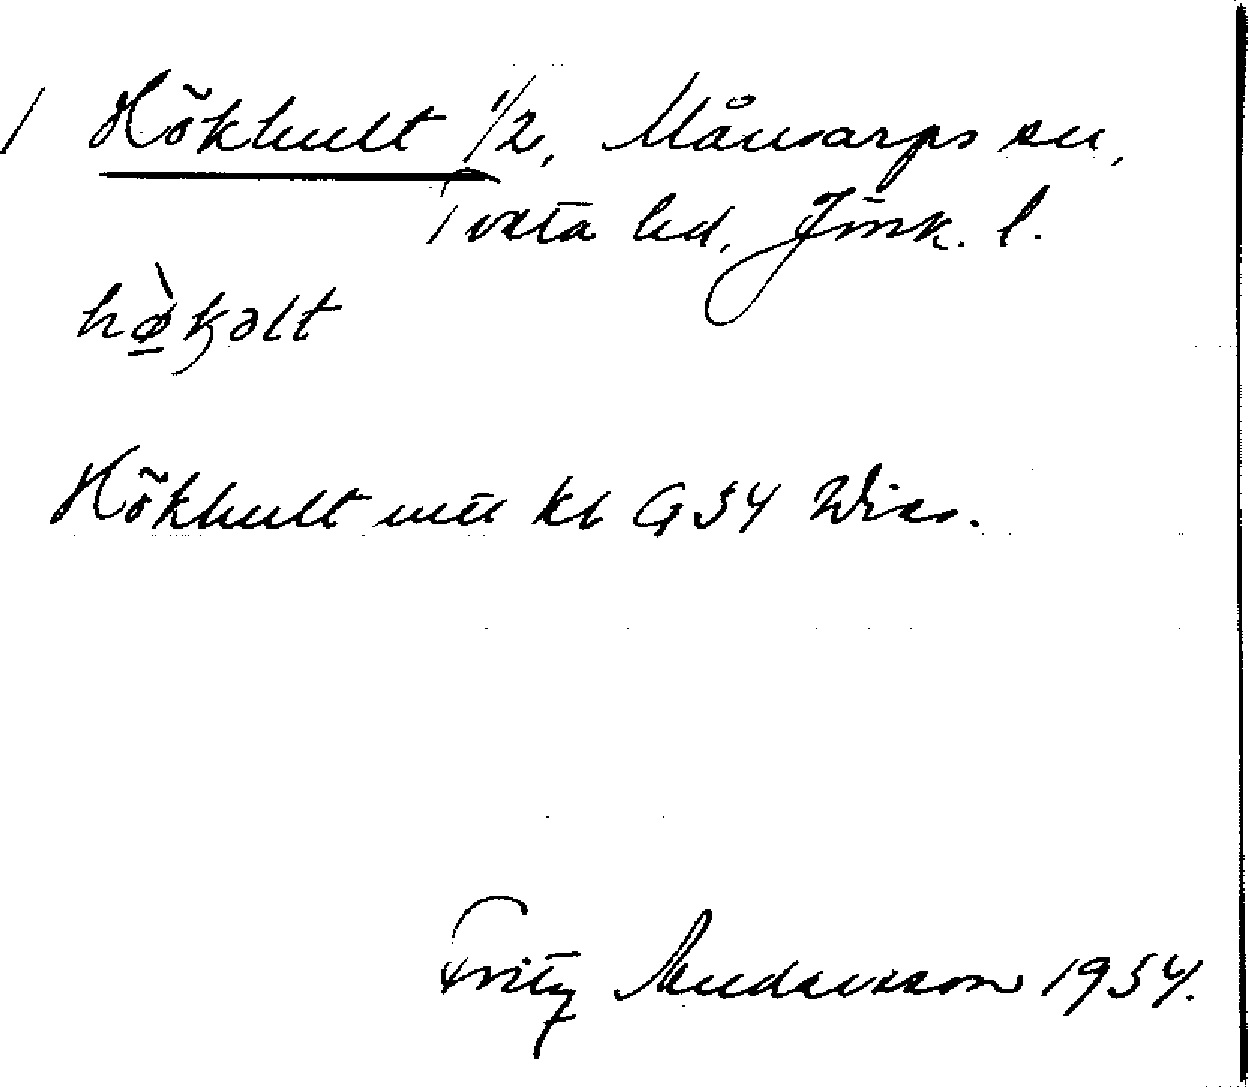 / Hökhult 1/2, Månsarps sn,
Tveta hd, Jönk. l.
hø̀kəlt
Hökhult mtl kb G54 Wies.
Fritz Andersson 1954.